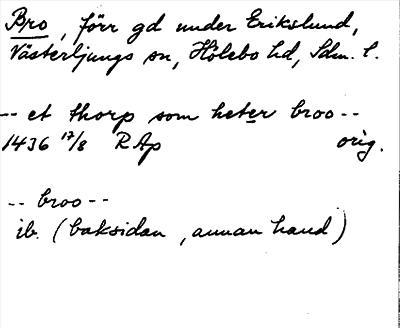 Bro, förr gd under Erikslund,
Västerljungs sn, Hölebo hd, Sdm. l.
-- et thorp som heter broo --
1436 17/8 RAp orig.
-- broo --
ib. (baksidan, annan hand)